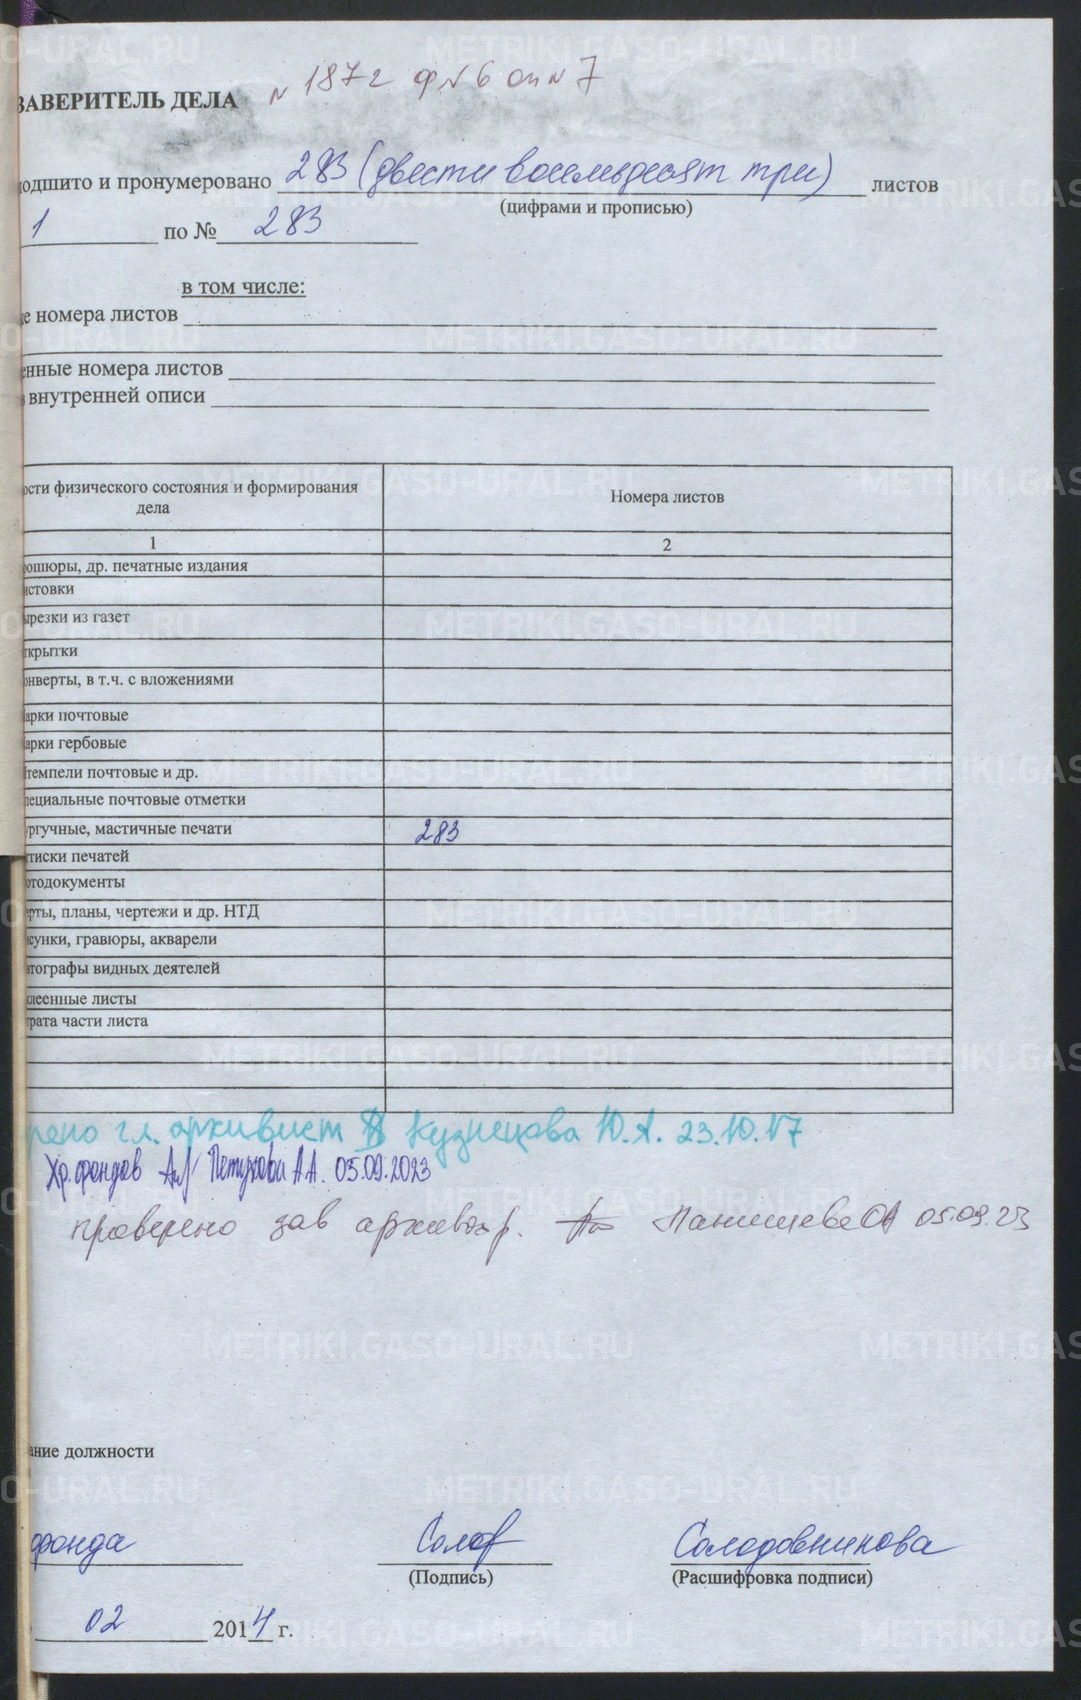 ЗАВЕРИТЕЛЬ ДЕЛА № 187 г ф№6 оп№7
одшито и пронумеровано 283 (двести восемьдесят три) листов
(цифрами и прописью)
1 по № 283
в том числе:
е номера листов
енные номера листов
внутренней описи
ости физического состояния и формирования дела Номера листов
1 2
рошюры, др. печатные издания
истовки
ырезки из газет
ткрытки
онверты, в т.ч. с вложениями
арки почтовые
арки гербовые
темпели почтовые и др.
пециальные почтовые отметки
ургучные, мастичные печати 283
тиски печатей
отодокументы
рты, планы, чертежи и др. НТД
сунки, гравюры, акварели
втографы видных деятелей
клеенные листы
трата части листа
рено гл. архивист Кузнецова Ю.А. 23.10.17
Хр. фондов Петухова А.А. 05.09.2023
проверено зав архивохр. 05.09.23
ание должности
фонда Солод Солодовникова
(Подпись) (Расшифровка подписи)
02 2014 г.
METRIKI.GASO-URAL.RU